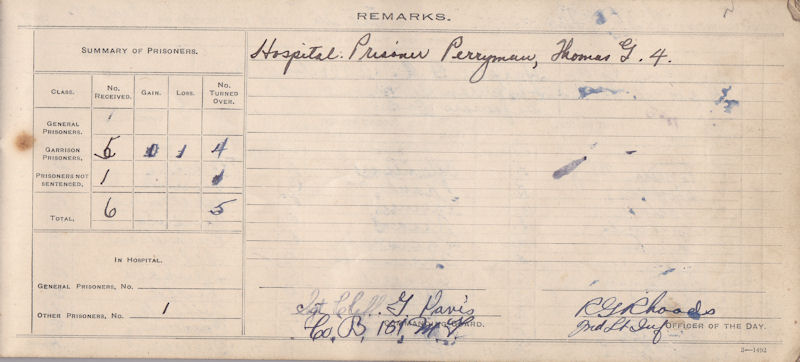 REMARKS.
SUMMARY OF PRISONERS.
Hospital. Prisoner Perryman, Thomas G. 4.
CLASS. NO. RECEIVED. GAIN. LOSS. NO. TURNED OVER.
GENERAL PRISONERS.
GARRISON PRISONERS, 5 0 1 4
PRISONERS NOT SENTENCED, 1 1
TOTAL, 6 5
IN HOSPITAL.
GENERAL PRISONERS, NO.
OTHER PRISONERS, NO. 1
G Davis
Co. B, 151,
GUARD.
R G Rhoads
2nd Lt Inf OFFICER OF THE DAY.
3—1492